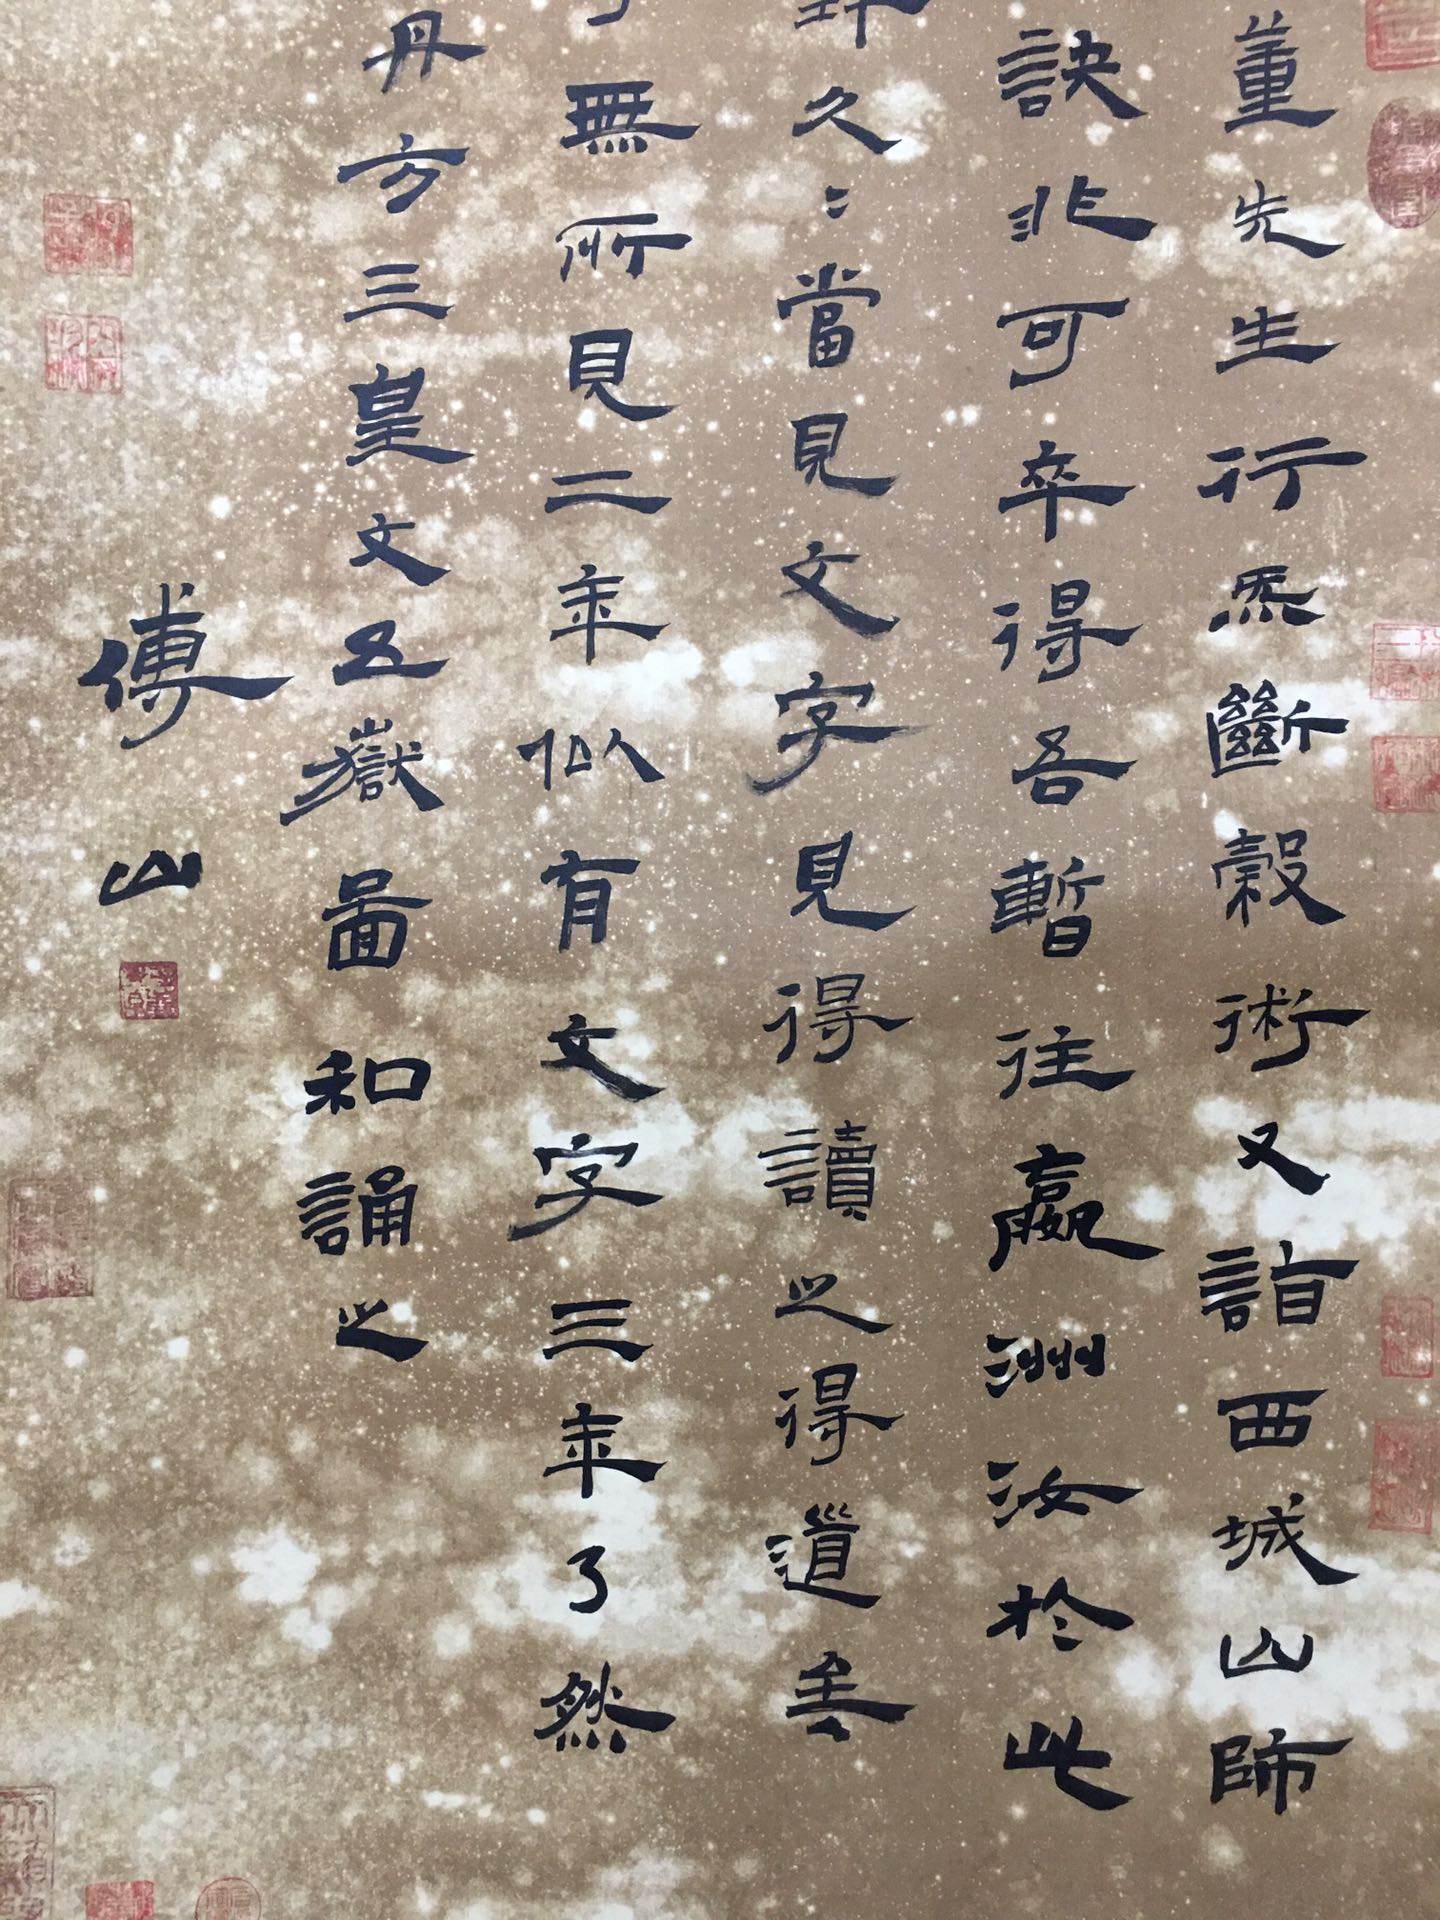 董先生行炁斷穀術又詣西城山師
訣非可卒得吾暫往瀛洲汝於此
久〻當見文字見得讀之得道矣
無所見二年似有文字三年了然
丹方三皇文五嶽圖和誦之
傅山